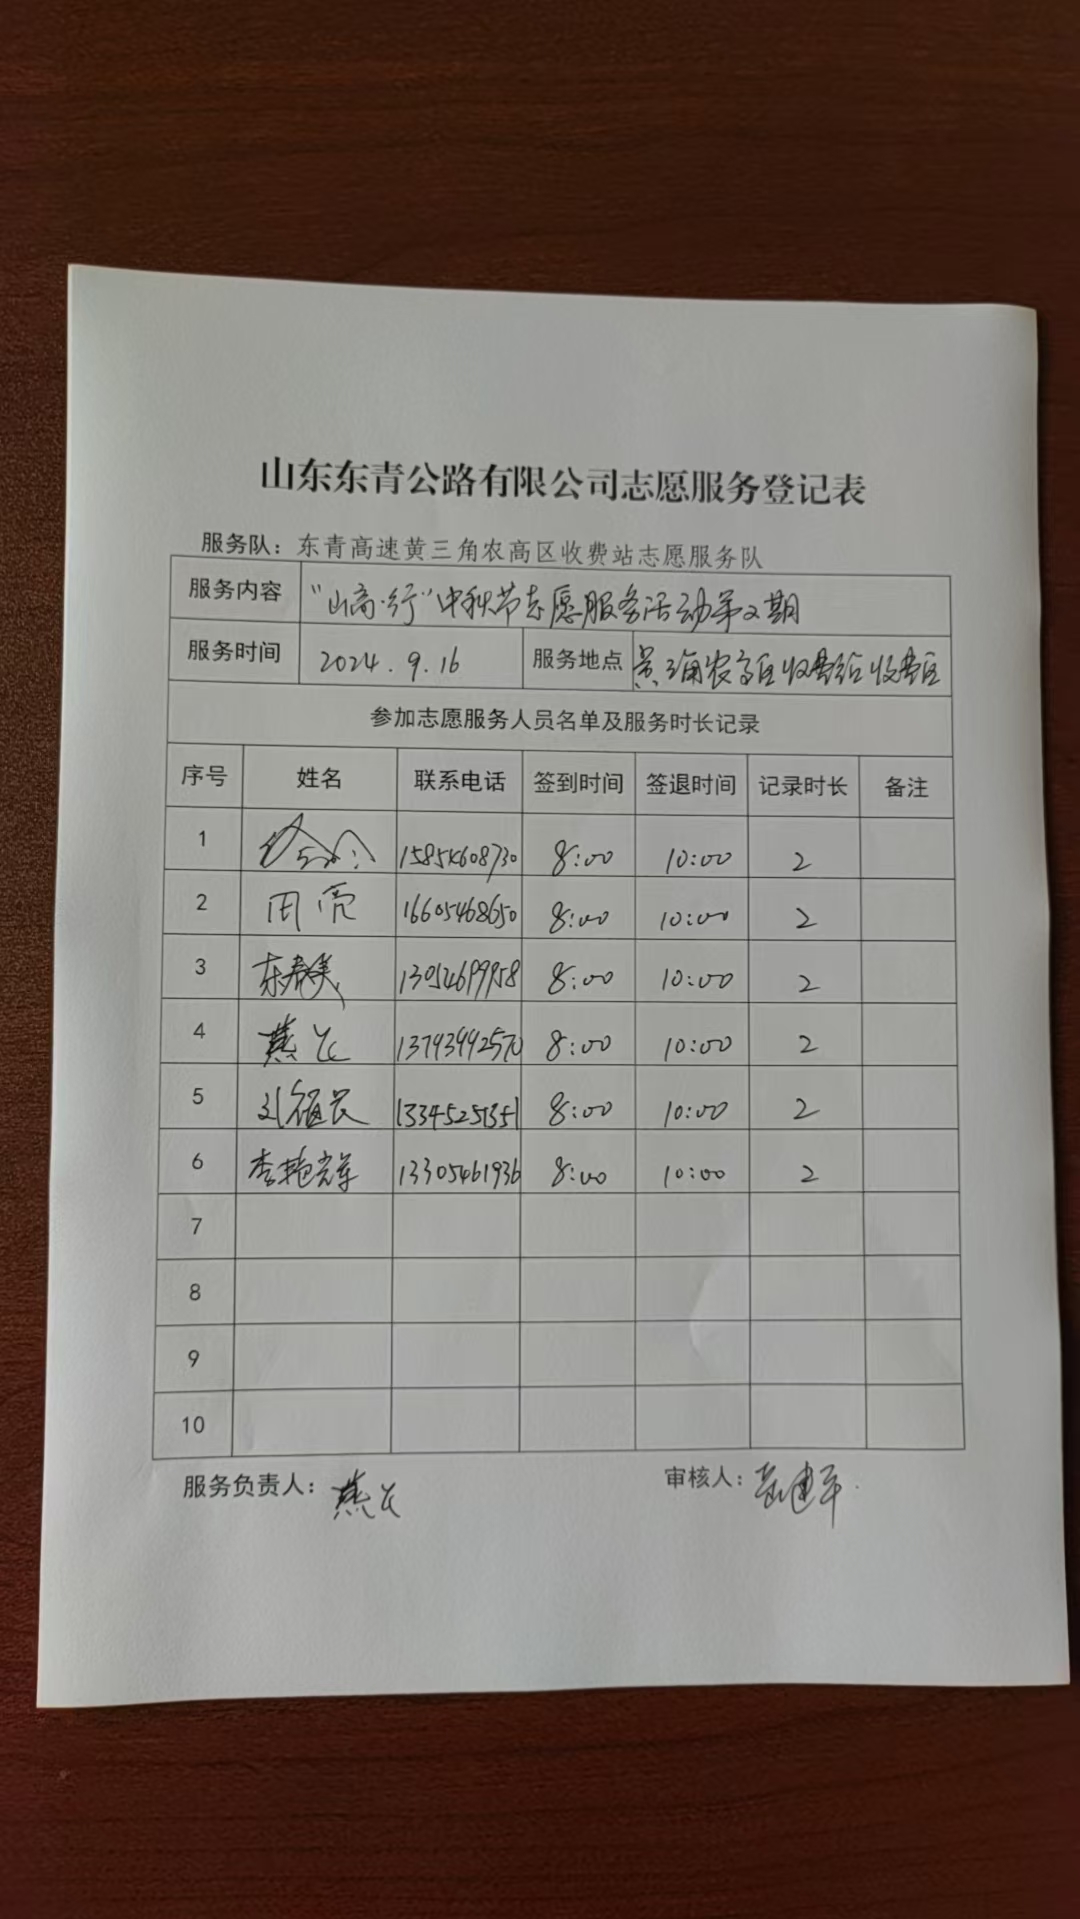 山东东青公路有限公司志愿服务登记表
服务队：东青高速黄三角农高区收费站志愿服务队
服务内容 “山高·行”中秋节志愿服务活动第2期
服务时间 2024.9.16 服务地点 黄三角农高区收费站收费区
参加志愿服务人员名单及服务时长记录
序号 姓名 联系电话 签到时间 签退时间 记录时长 备注
1 15854608730 8:00 10:00 2
2 田亮 16605468650 8:00 10:00 2
3 东春美 13054699958 8:00 10:00 2
4 燕飞 13793992570 8:00 10:00 2
5 刘植民 13345251351 8:00 10:00 2
6 李艳辉 13305461936 8:00 10:00 2
7
8
9
10
服务负责人：燕飞 审核人：建军